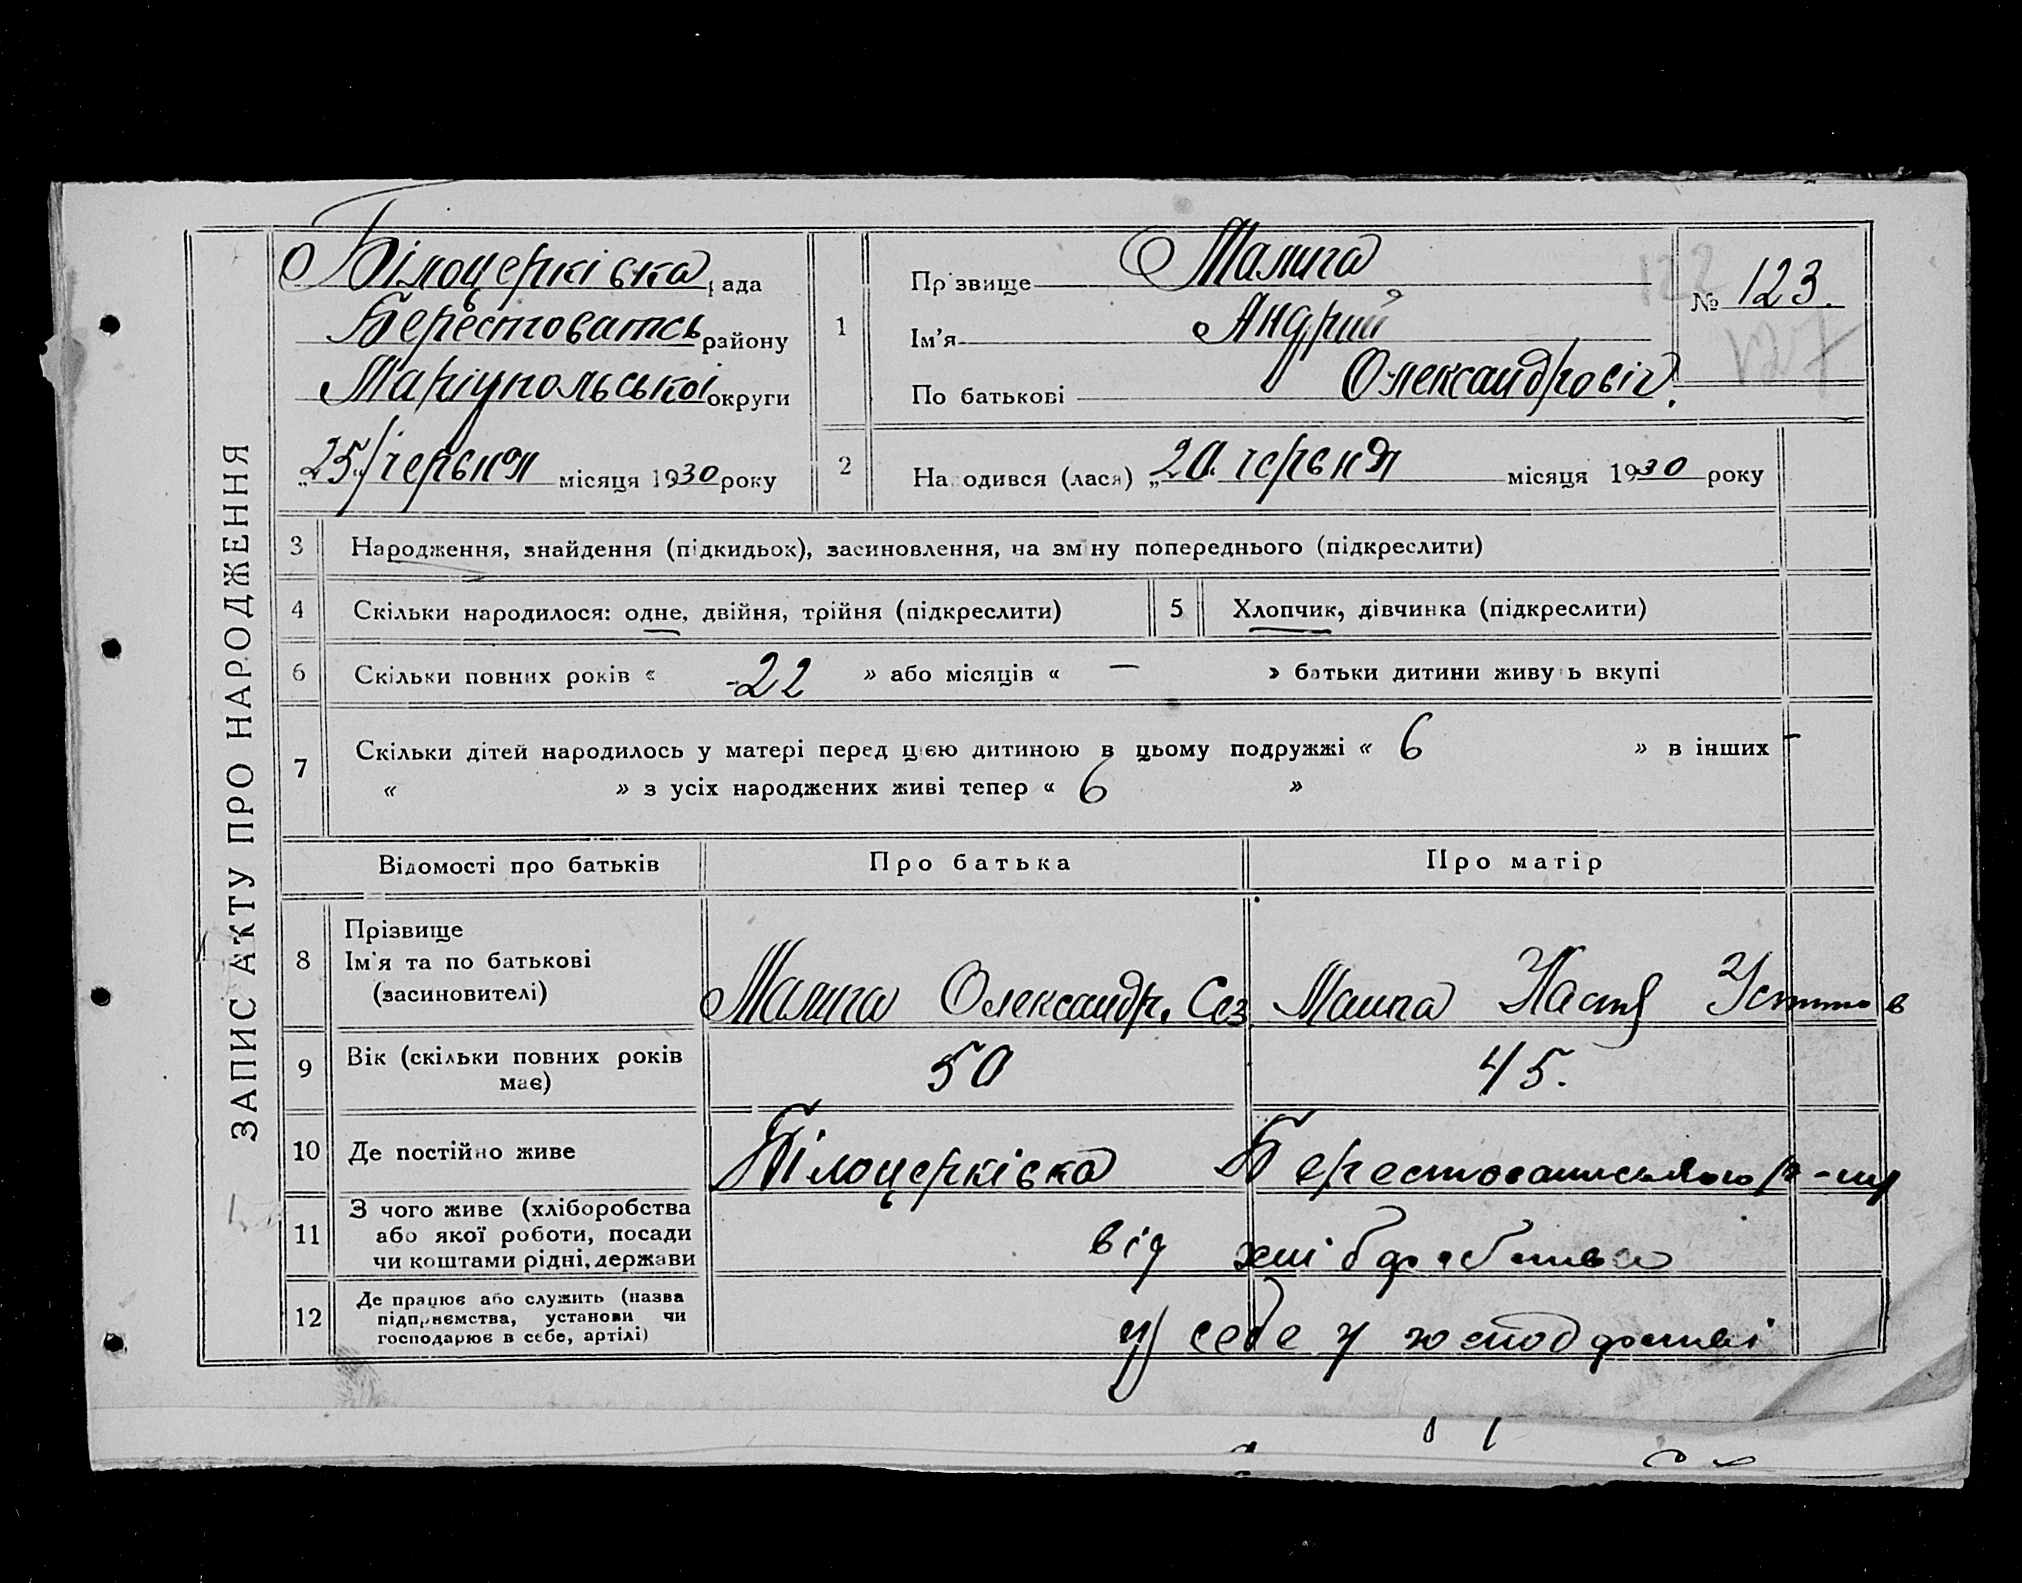 ЗАПИС АКТУ ПРО НАРОДЖЕННЯ
Білоцерківка рада
Берестоватсь району
Маріупольської округи
„25" червня місяця 1930 року
1
Прізвище Малига
Ім'я Андрий
По батькові Олександровіч.
№ 123.
122
127
2
Народився (лася) „20. червня місяця 1930 року
3 Народження, знайдення (підкидьок), засиновлення, на зміну попереднього (підкреслити)
4 Скільки народилося: одне, двійня, трійня (підкреслити)
5 Хлопчик, дівчинка (підкреслити)
6 Скільки повних років « 22 » або місяців « — » батьки дитини живуть вкупі
7 Скільки дітей народилось у матері перед цією дитиною в цьому подружжі « 6 » в інших –
« » з усіх народжених живі тепер « 6 »
Відомості про батьків Про батька Про матір
8 Прізвище
Ім'я та по батькові
(засиновителі)
Малига Олександр. Сез Малига Настя
9 Вік (скільки повних років
має)
50 45.
10 Де постійно живе Білоцерківка Берестоватського р-ну
11 З чого живе (хліборобства
або якої роботи, посади
чи коштами рідні, держави
від хліборобства
12 Де працює або служить (назва
підприємства, установи чи
господарює в себе, артілі)
у себе у господарстві